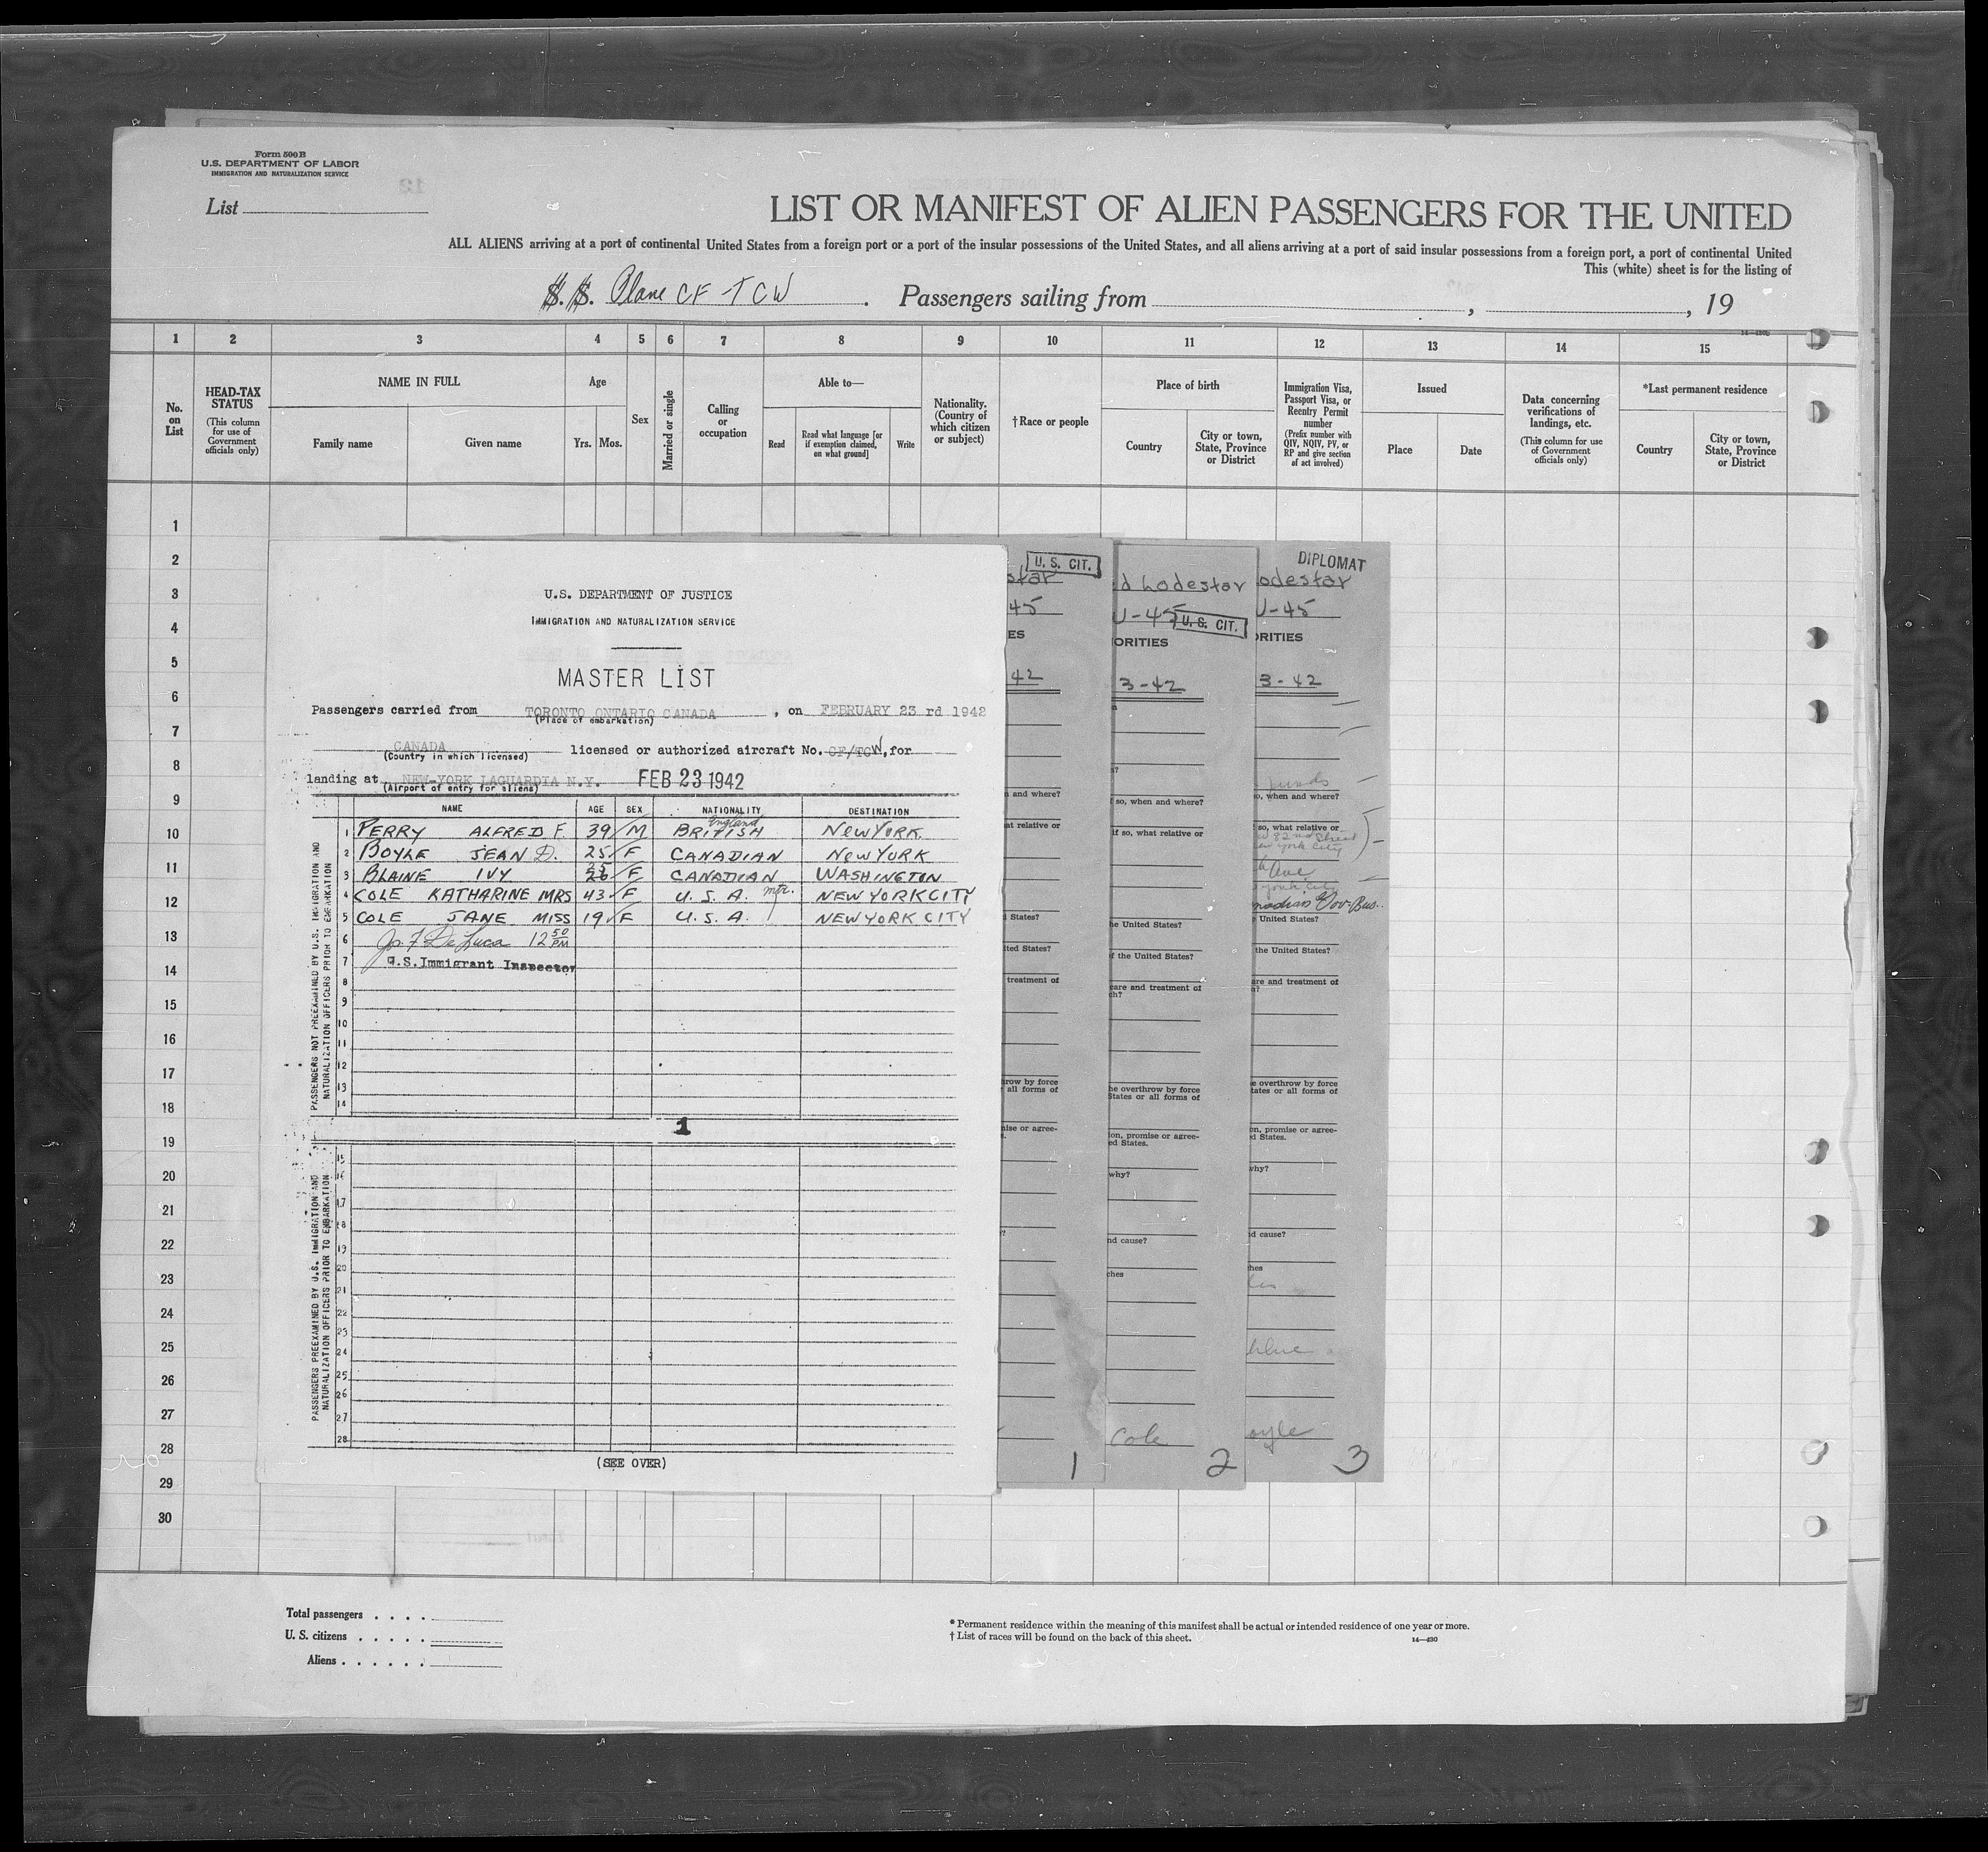 Form 500 B
U.S. DEPARTMENT OF LABOR
IMMIGRATION AND NATURALIZATION SERVICE
List
LIST OR MANIFEST OF ALIEN PASSENGERS FOR THE UNITED
ALL ALIENS arriving at a port of continental United States from a foreign port or a port of the insular possessions of the United States, and all aliens arriving at a port of said insular possessions from a foreign port, a port of continental United
This (white) sheet is for the listing of
S.S. Plane CF-TCW. Passengers sailing from , , 19
1 2 3 4 5 6 7 8 9 10 11 12 13 14 15
No. on List
HEAD-TAX STATUS (This column for use of Government officials only)
NAME IN FULL
Family name Given name
Age
Yrs. Mos.
Sex
Married or single
Calling or occupation
Able to—
Read Read what language [or if exemption claimed, on what ground] Write
Nationality. (Country of which citizen or subject)
†Race or people
Place of birth
Country City or town, State, Province or District
Immigration Visa, Passport Visa, or Reentry Permit number (Prefix number with QIV, NQIV, PV, or RP and give section of act involved)
Issued
Place Date
Data concerning verifications of landings, etc. (This column for use of Government officials only)
*Last permanent residence
Country City or town, State, Province or District
1
2
3
4
5
6
7
8
9
10
11
12
13
14
15
16
17
18
19
20
21
22
23
24
25
26
27
28
29
30
U.S. DEPARTMENT OF JUSTICE
IMMIGRATION AND NATURALIZATION SERVICE
MASTER LIST
Passengers carried from TORONTO ONTARIO CANADA, on FEBRUARY 23 rd 1942
(Place of embarkation)
CANADA licensed or authorized aircraft No. CF/TCW, for
(Country in which licensed)
landing at NEW-YORK LAGUARDIA N.Y. FEB 23 1942
(Airport of entry for aliens)
NAME AGE SEX NATIONALITY DESTINATION
England
1 PERRY ALFRED F. 39 M BRITISH NEW YORK.
2 BOYLE JEAN D. 25 F CANADIAN NEW YORK
25
3 BLAINE IVY 26 F CANADIAN WASHINGTON
4 COLE KATHARINE MRS 43 F U.S.A. NEW YORK CITY
5 COLE JANE MISS 19 F U.S.A. NEW YORK CITY
6 Jo. F De Luca 12 50 PM
7 U.S. Immigrant Inspector
8
9
10
11
12
13
14
PASSENGERS NOT PREEXAMINED BY U.S. IMMIGRATION AND NATURALIZATION OFFICERS PRIOR TO EMBARKATION
1
15
16
17
18
19
20
21
22
23
24
25
26
27
28
PASSENGERS PREEXAMINED BY U.S. IMMIGRATION AND NATURALIZATION OFFICERS PRIOR TO EMBARKATION
(SEE OVER)
U. S. CIT.
star
45
ES
42
n and where?
at relative or
d States?
ited States?
treatment of
row by force
all forms of
nise or agree-
1
d Lodestar
U-45
U. S. CIT.
ORITIES
3-42
f so, when and where?
if so, what relative or
he United States?
f the United States?
care and treatment of
ch?
he overthrow by force
States or all forms of
ion, promise or agree-
ed States.
why?
nd cause?
ches
Cole
2
DIPLOMAT
odestar
U-45
ORITIES
3-42
funds
o, when and where?
so, what relative or
82nd Street
New York City
Ave
York City
Canadian Gov. Bus.
United States?
the United States?
are and treatment of
h?
e overthrow by force
tates or all forms of
on, promise or agree-
d States.
why?
d cause?
hes
blue
oyle
3
Total passengers
U. S. citizens
Aliens
* Permanent residence within the meaning of this manifest shall be actual or intended residence of one year or more.
† List of races will be found on the back of this sheet.
14—430